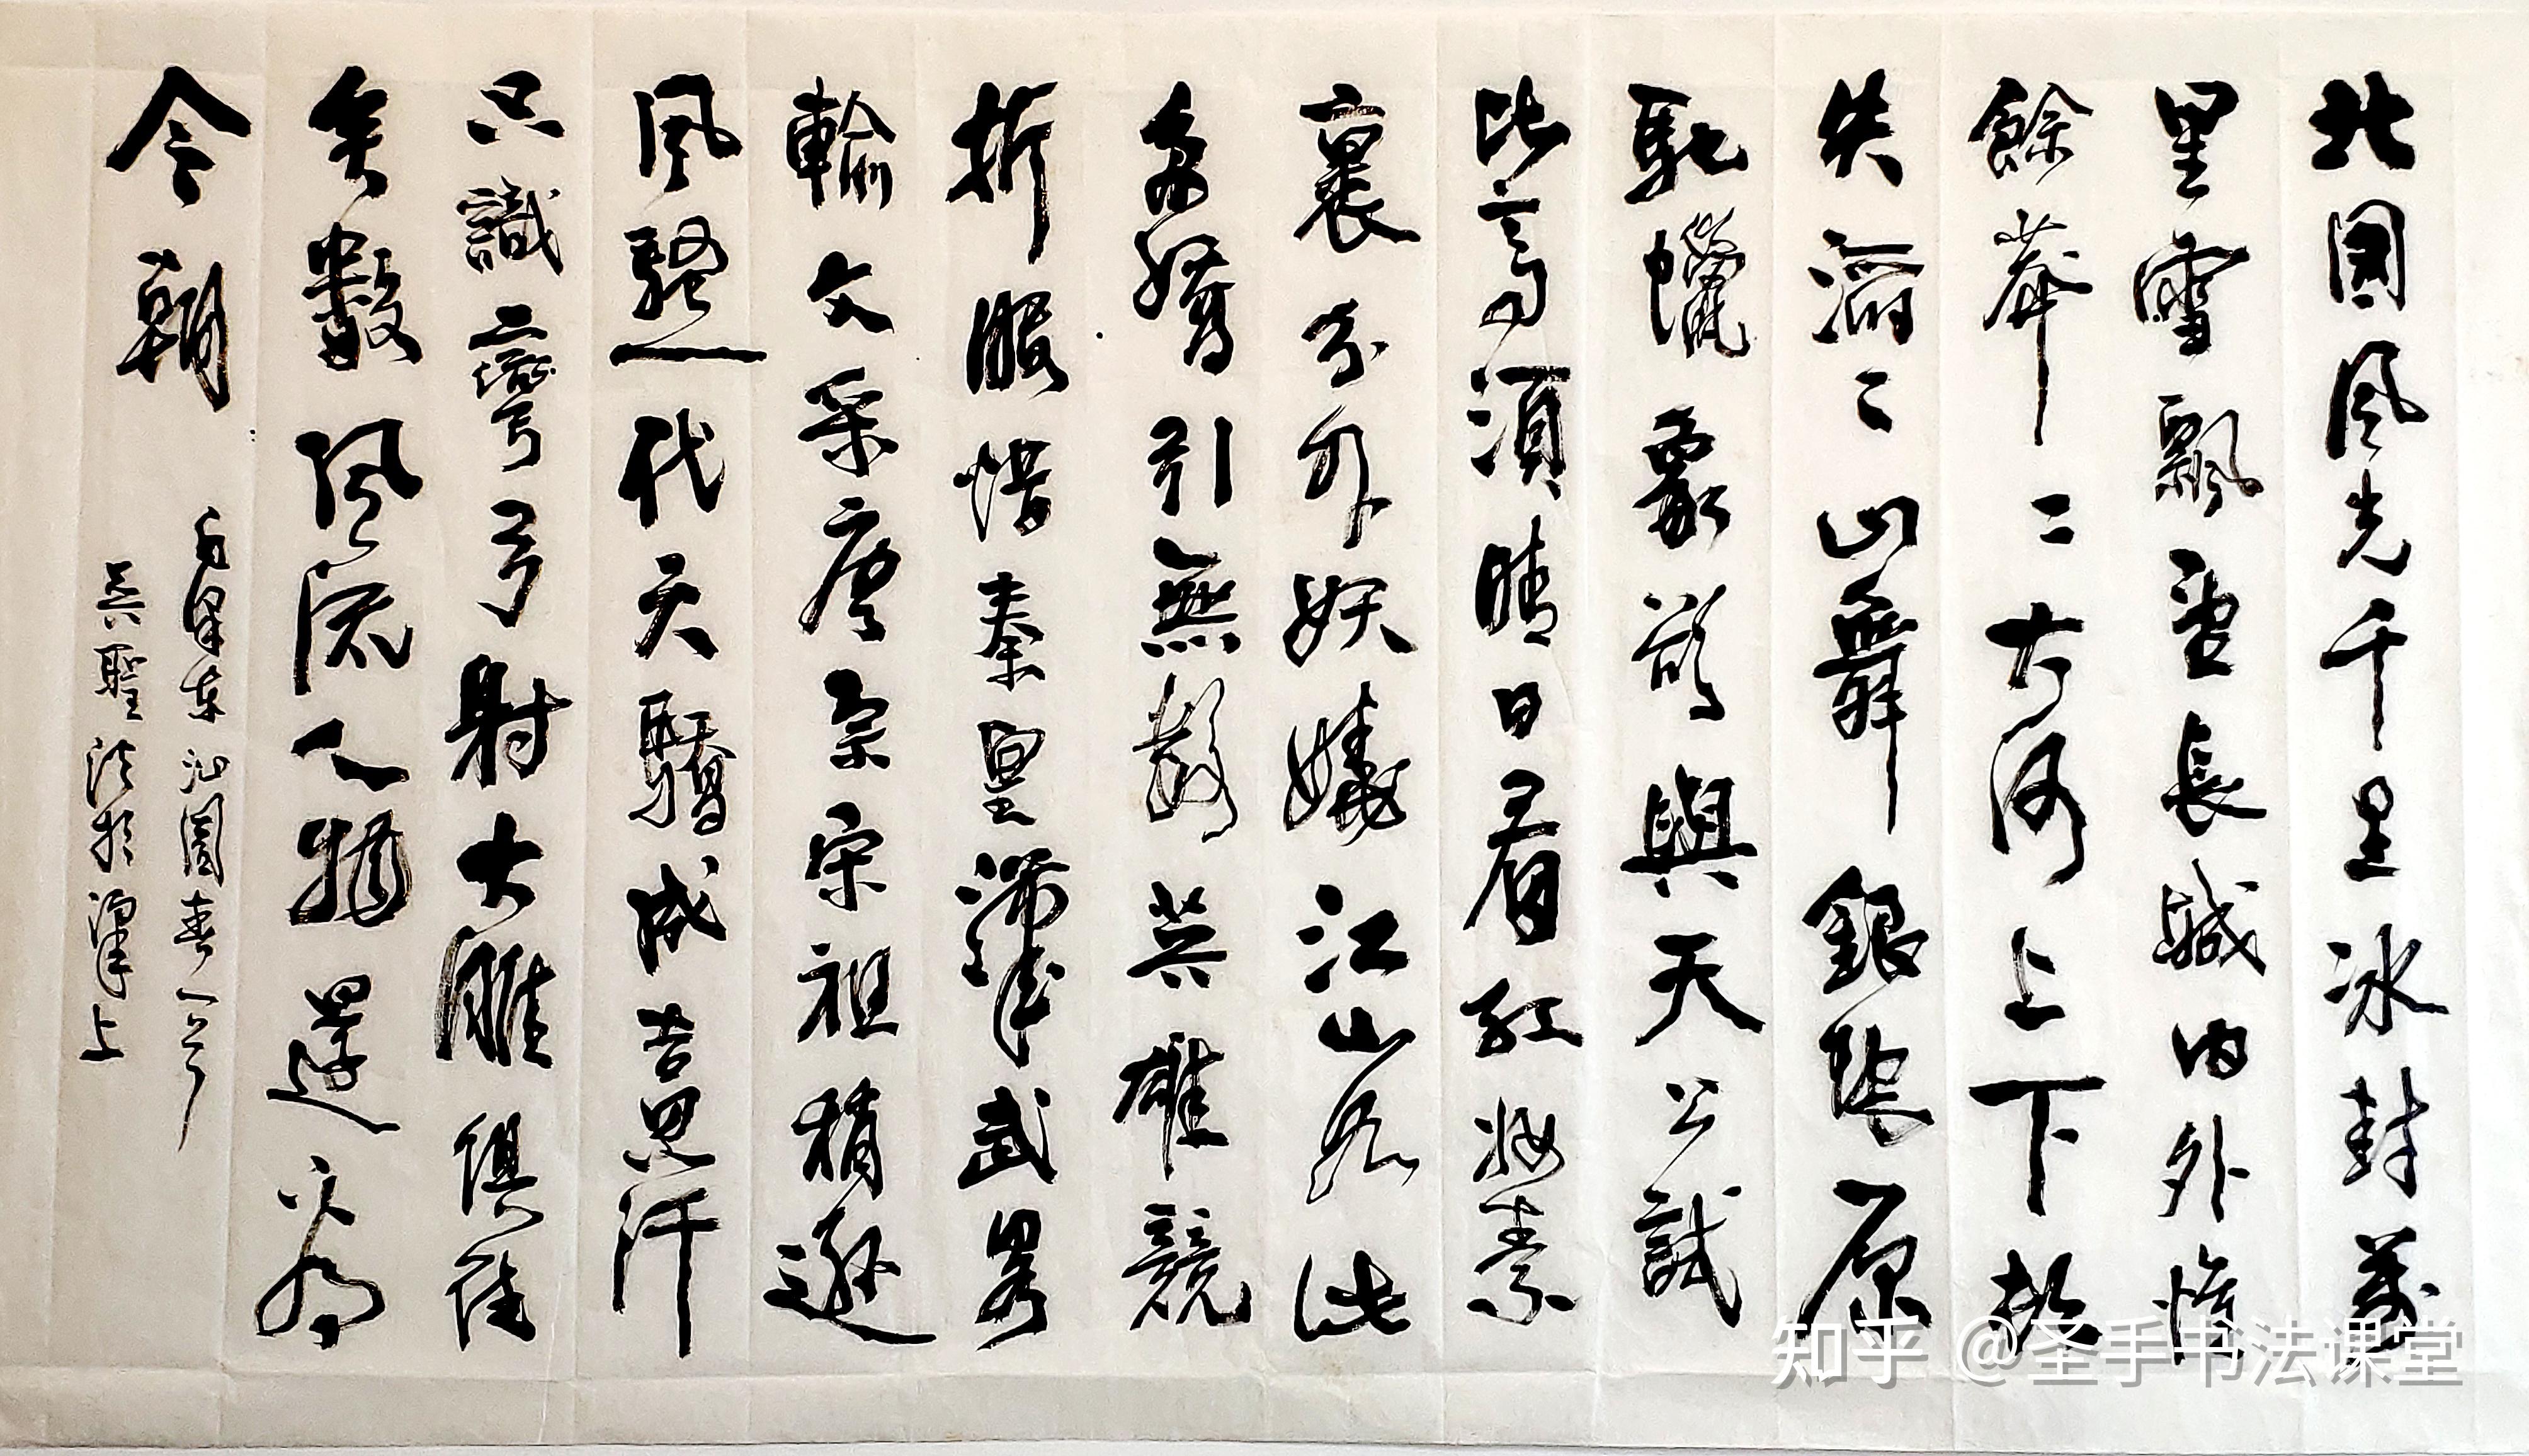 北國風光千里冰封萬
里雪飄望長城內外惟
餘莽二二大河上下頓
失滔二二山舞銀蛇原
馳蠟象欲與天公試
比高須晴日看紅妝素
裹分外妖嬈江山如此
多嬌引無數英雄競
折腰惜秦皇漢武畧
輸文采唐宗宋祖稍遜
風騷一代天驕成吉思汗
只識彎弓射大雕俱往
矣數風流人物還看
今朝
毛澤東沁園春一首
吳聖 於 上
知乎 @圣手书法课堂